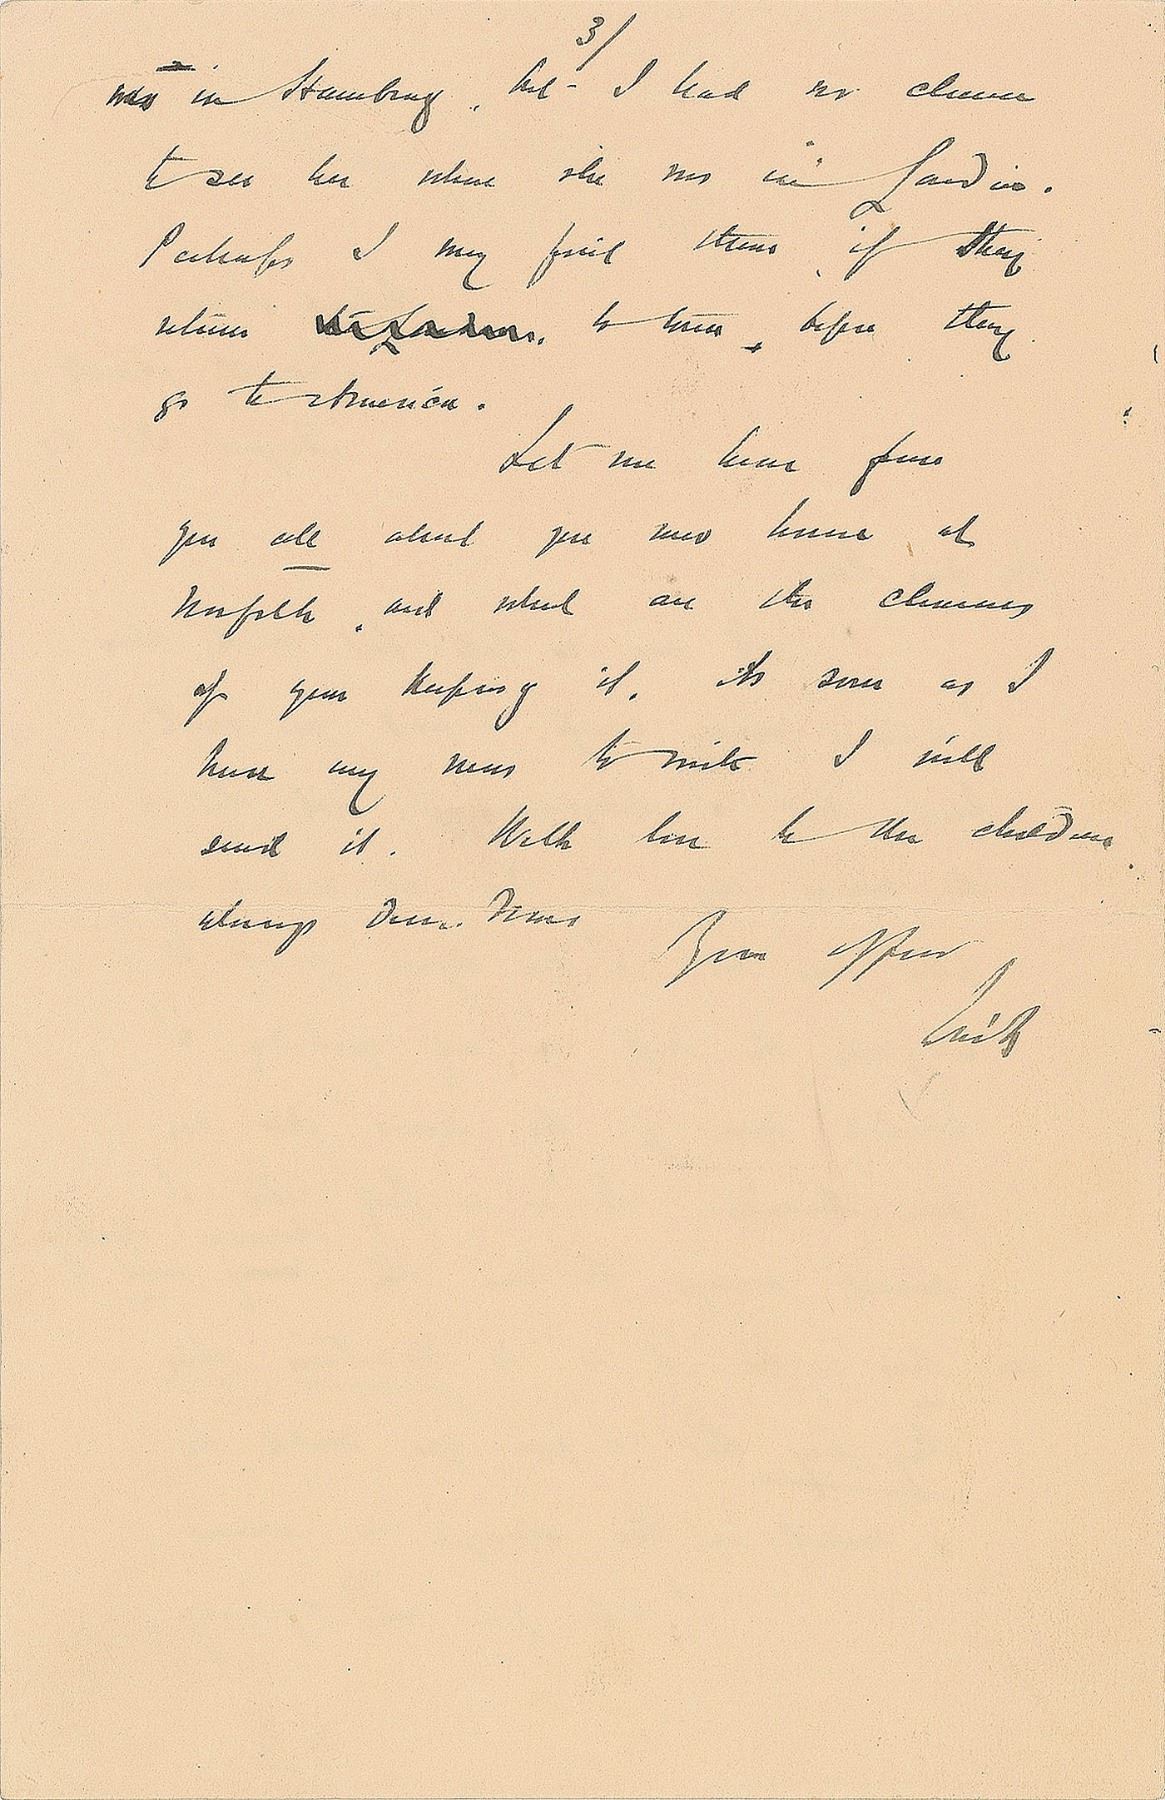 3/
was in Hamburg, but - I had no chance
to see her when she was in London.
Perhaps I may find them, if they
return to town, before they
go to America.
Let me hear from
you all about your new house at
Norfolk, and what are the chances
of your keeping it. As soon as I
have any news to write I will
send it. With love to the children.
always dear
Your affec